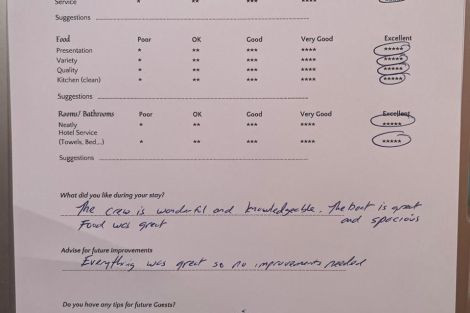 Service
Suggestions
Food Poor OK Good Very Good Excellent
Presentation * ** *** **** *****
Variety * ** *** **** *****
Quality * ** *** **** *****
Kitchen (clean) * ** *** **** *****
Suggestions
Rooms/ Bathrooms Poor OK Good Very Good Excellent
Neatly * ** *** **** *****
Hotel Service
(Towels, Bed,...) * ** *** **** *****
Suggestions
What did you like during your stay?
The crew is wonderful and knowledgeable. The boat is great
Food was great and spacious
Advise for future improvements
Everything was great so no improvements needed
Do you have any tips for future Guests?